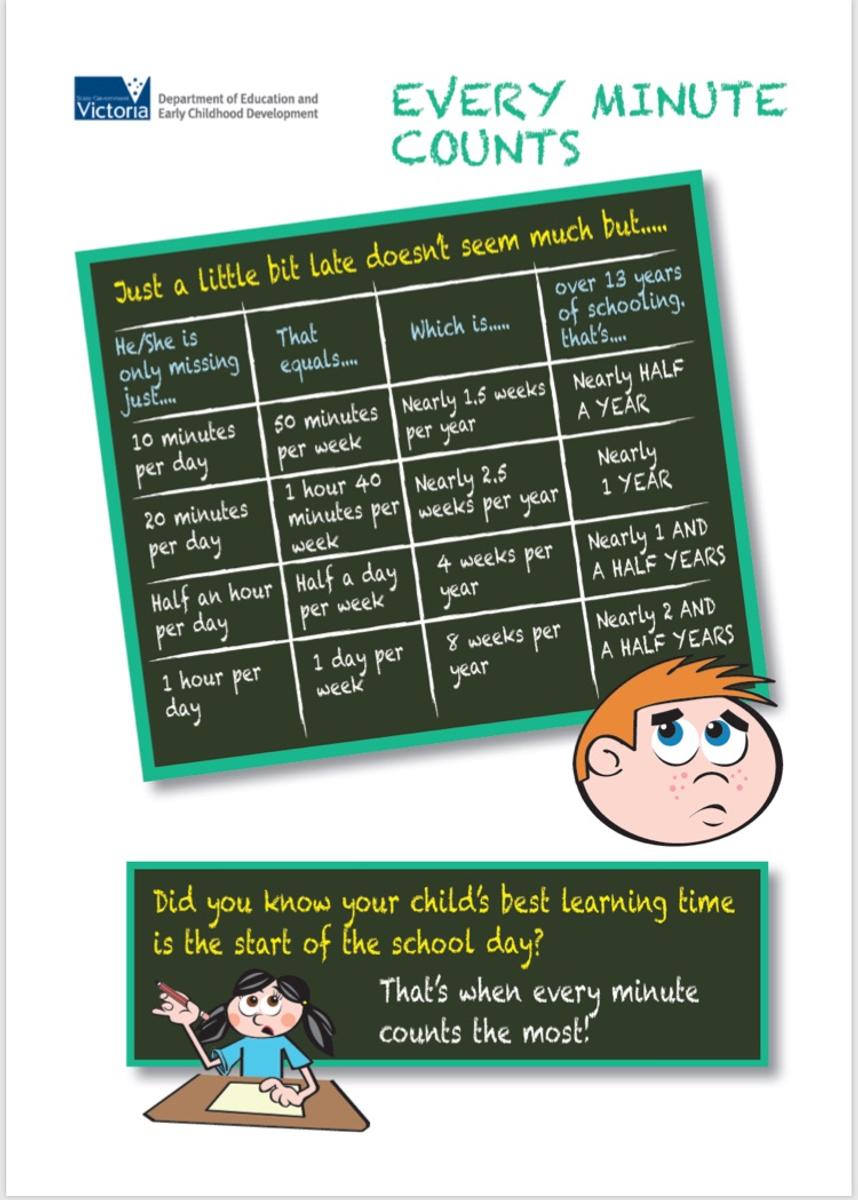 State Government
Victoria
Department of Education and
Early Childhood Development
EVERY MINUTE
COUNTS
Just a little bit late doesn't seem much but.....
He/She is
only missing
just....
That
equals....
Which is.....
over 13 years
of schooling,
that's....
10 minutes
per day
50 minutes
per week
Nearly 1.5 weeks
per year
Nearly HALF
A YEAR
20 minutes
per day
1 hour 40
minutes per
week
Nearly 2.5
weeks per year
Nearly
1 YEAR
Half an hour
per day
Half a day
per week
4 weeks per
year
Nearly 1 AND
A HALF YEARS
1 hour per
day
1 day per
week
8 weeks per
year
Nearly 2 AND
A HALF YEARS
Did you know your child's best learning time
is the start of the school day?
That's when every minute
counts the most!